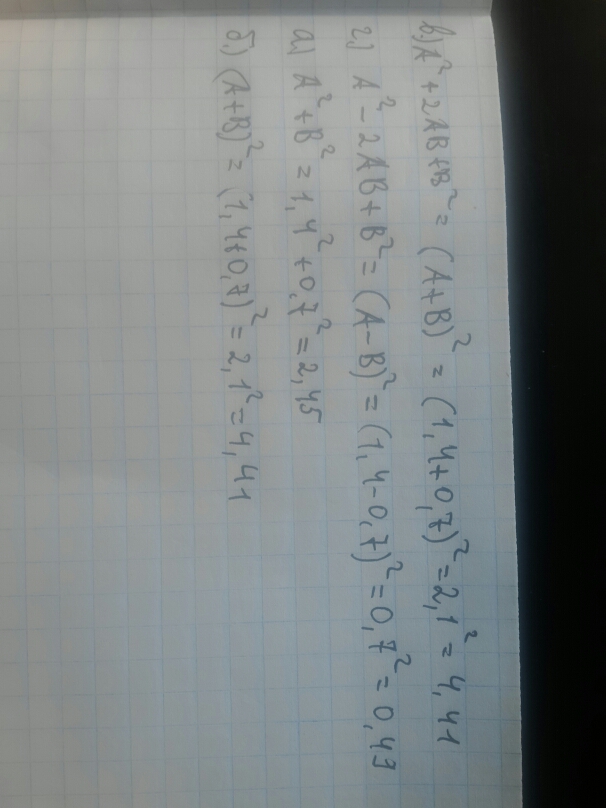 в.) A² + 2AB + B² = (A+B)² = (1,4+0,7)² = 2,1² = 4,41
г.) A² - 2AB + B² = (A-B)² = (1,4-0,7)² = 0,7² = 0,49
а.) A² + B² = 1,4² + 0,7² = 2,45
б.) (A+B)² = (1,4+0,7)² = 2,1² = 4,41